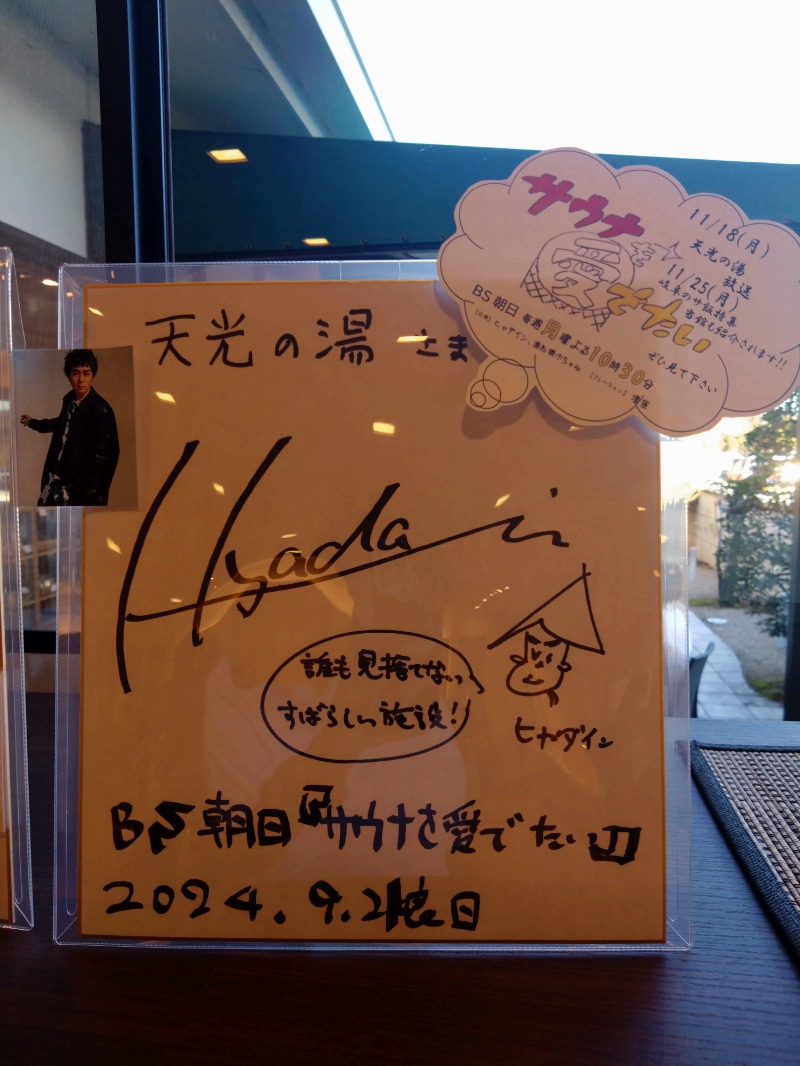 サウナを
愛でたい
11/18(月)
天光の湯
放送
11/25(月)
岐阜のサ飯特集
当館も紹介されます!!
ぜひ見て下さい
BS朝日 毎週月曜よる10時30分
天光の湯 さま
Hyadain
誰も見捨てないっ
すばらしい施設!
ヒャダイン
BS朝日『サウナを愛でたい』
2024.9.2
日